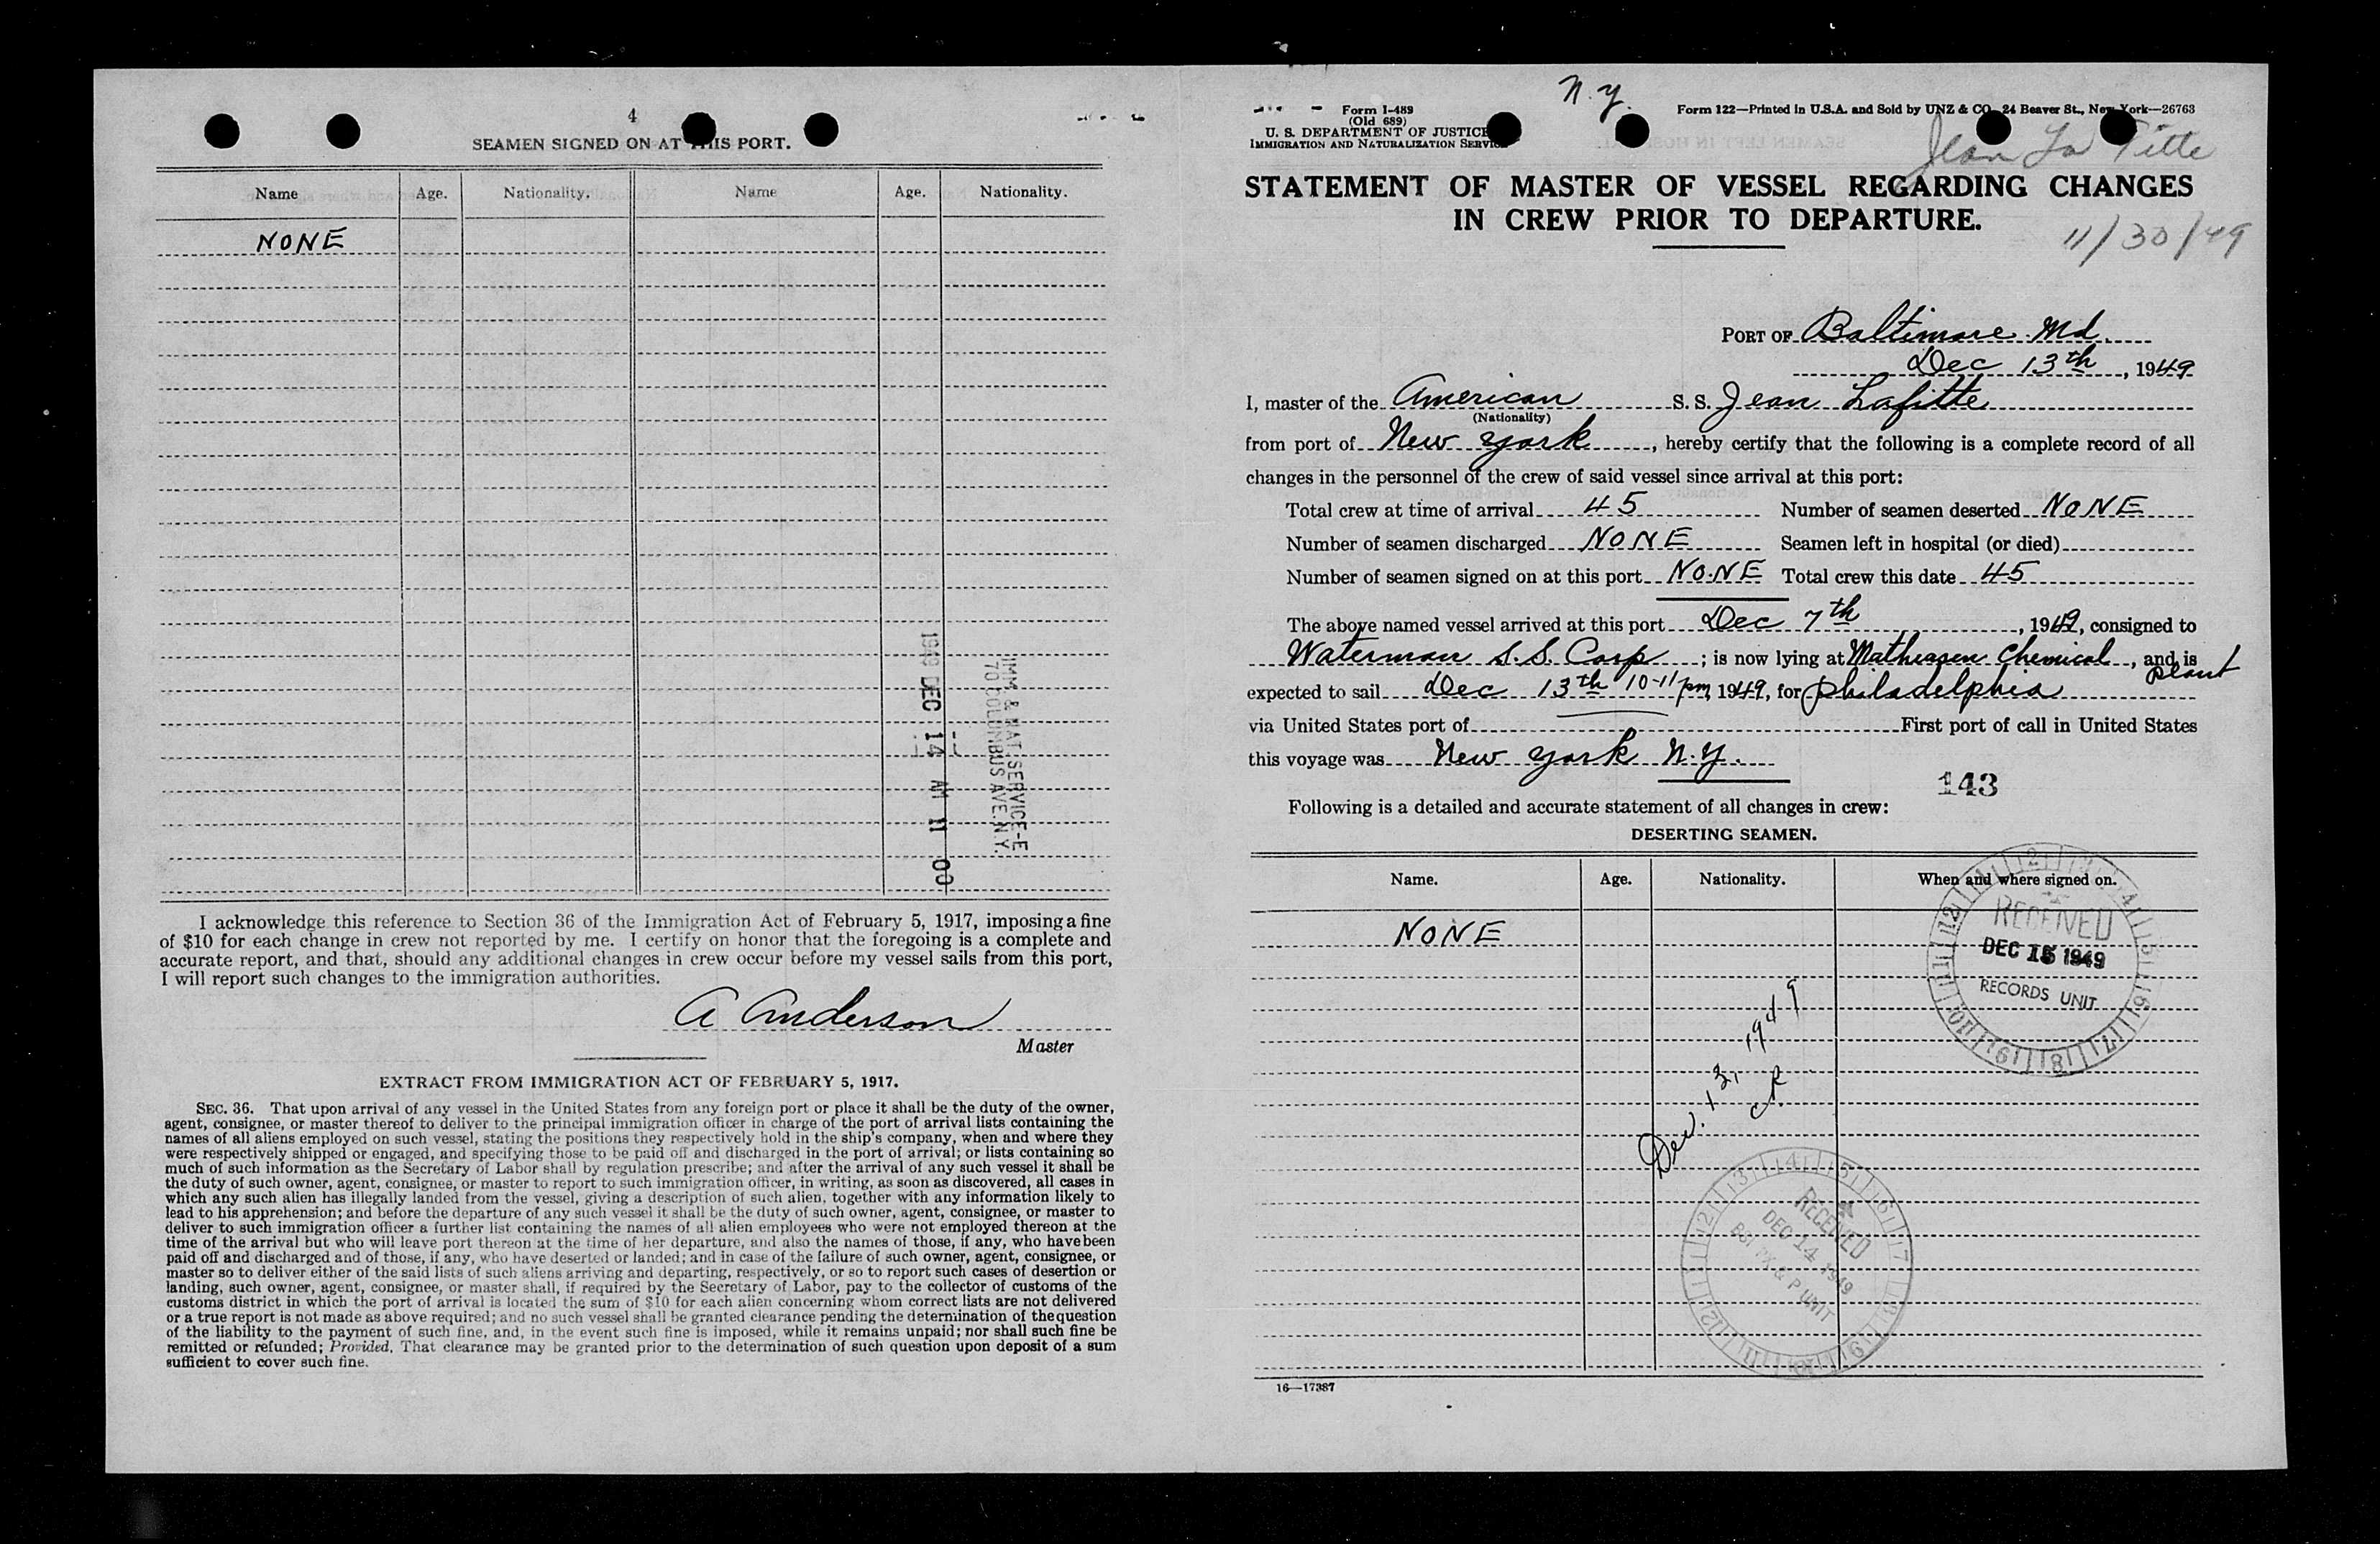 4
SEAMEN SIGNED ON AT THIS PORT.
Name Age. Nationality. Name Age. Nationality.
NONE
1949 DEC 14 AM 11 00
IMM. & NAT. SERVICE-E
70 COLUMBUS AVE. N.Y.
I acknowledge this reference to Section 36 of the Immigration Act of February 5, 1917, imposing a fine
of $10 for each change in crew not reported by me. I certify on honor that the foregoing is a complete and
accurate report, and that, should any additional changes in crew occur before my vessel sails from this port,
I will report such changes to the immigration authorities.
A Anderson
Master
EXTRACT FROM IMMIGRATION ACT OF FEBRUARY 5, 1917.
SEC. 36. That upon arrival of any vessel in the United States from any foreign port or place it shall be the duty of the owner,
agent, consignee, or master thereof to deliver to the principal immigration officer in charge of the port of arrival lists containing the
names of all aliens employed on such vessel, stating the positions they respectively hold in the ship's company, when and where they
were respectively shipped or engaged, and specifying those to be paid off and discharged in the port of arrival; or lists containing so
much of such information as the Secretary of Labor shall by regulation prescribe; and after the arrival of any such vessel it shall be
the duty of such owner, agent, consignee, or master to report to such immigration officer, in writing, as soon as discovered, all cases in
which any such alien has illegally landed from the vessel, giving a description of such alien, together with any information likely to
lead to his apprehension; and before the departure of any such vessel it shall be the duty of such owner, agent, consignee, or master to
deliver to such immigration officer a further list containing the names of all alien employees who were not employed thereon at the
time of the arrival but who will leave port thereon at the time of her departure, and also the names of those, if any, who have been
paid off and discharged and of those, if any, who have deserted or landed; and in case of the failure of such owner, agent, consignee, or
master so to deliver either of the said lists of such aliens arriving and departing, respectively, or so to report such cases of desertion or
landing, such owner, agent, consignee, or master shall, if required by the Secretary of Labor, pay to the collector of customs of the
customs district in which the port of arrival is located the sum of $10 for each alien concerning whom correct lists are not delivered
or a true report is not made as above required; and no such vessel shall be granted clearance pending the determination of the question
of the liability to the payment of such fine, and, in the event such fine is imposed, while it remains unpaid; nor shall such fine be
remitted or refunded; Provided, That clearance may be granted prior to the determination of such question upon deposit of a sum
sufficient to cover such fine.
N.Y.
Form I-489
(Old 689)
U. S. DEPARTMENT OF JUSTICE
IMMIGRATION AND NATURALIZATION SERVICE
Form 122—Printed in U.S.A. and Sold by UNZ & CO., 24 Beaver St., New York—26763
Jean La Fitte
STATEMENT OF MASTER OF VESSEL REGARDING CHANGES
IN CREW PRIOR TO DEPARTURE.
11/30/49
PORT OF Baltimore Md.
Dec 13th, 1949
I, master of the American S. S. Jean Lafitte
(Nationality)
from port of New York, hereby certify that the following is a complete record of all
changes in the personnel of the crew of said vessel since arrival at this port:
Total crew at time of arrival 45 Number of seamen deserted NONE
Number of seamen discharged NONE Seamen left in hospital (or died)
Number of seamen signed on at this port NONE Total crew this date 45
The above named vessel arrived at this port Dec 7th, 1949, consigned to
Waterman S.S. Corp; is now lying at Mathiasen Chemical plant, and is
expected to sail Dec 13th 10-11 pm 1949, for Philadelphia
via United States port of First port of call in United States
this voyage was New York N.Y.
143
Following is a detailed and accurate statement of all changes in crew:
DESERTING SEAMEN.
Name. Age. Nationality. When and where signed on.
NONE
RECEIVED
DEC 15 1949
RECORDS UNIT
Dec. 13, 1949
RECEIVED
DEC 14 1949
& P UNIT
16—17387